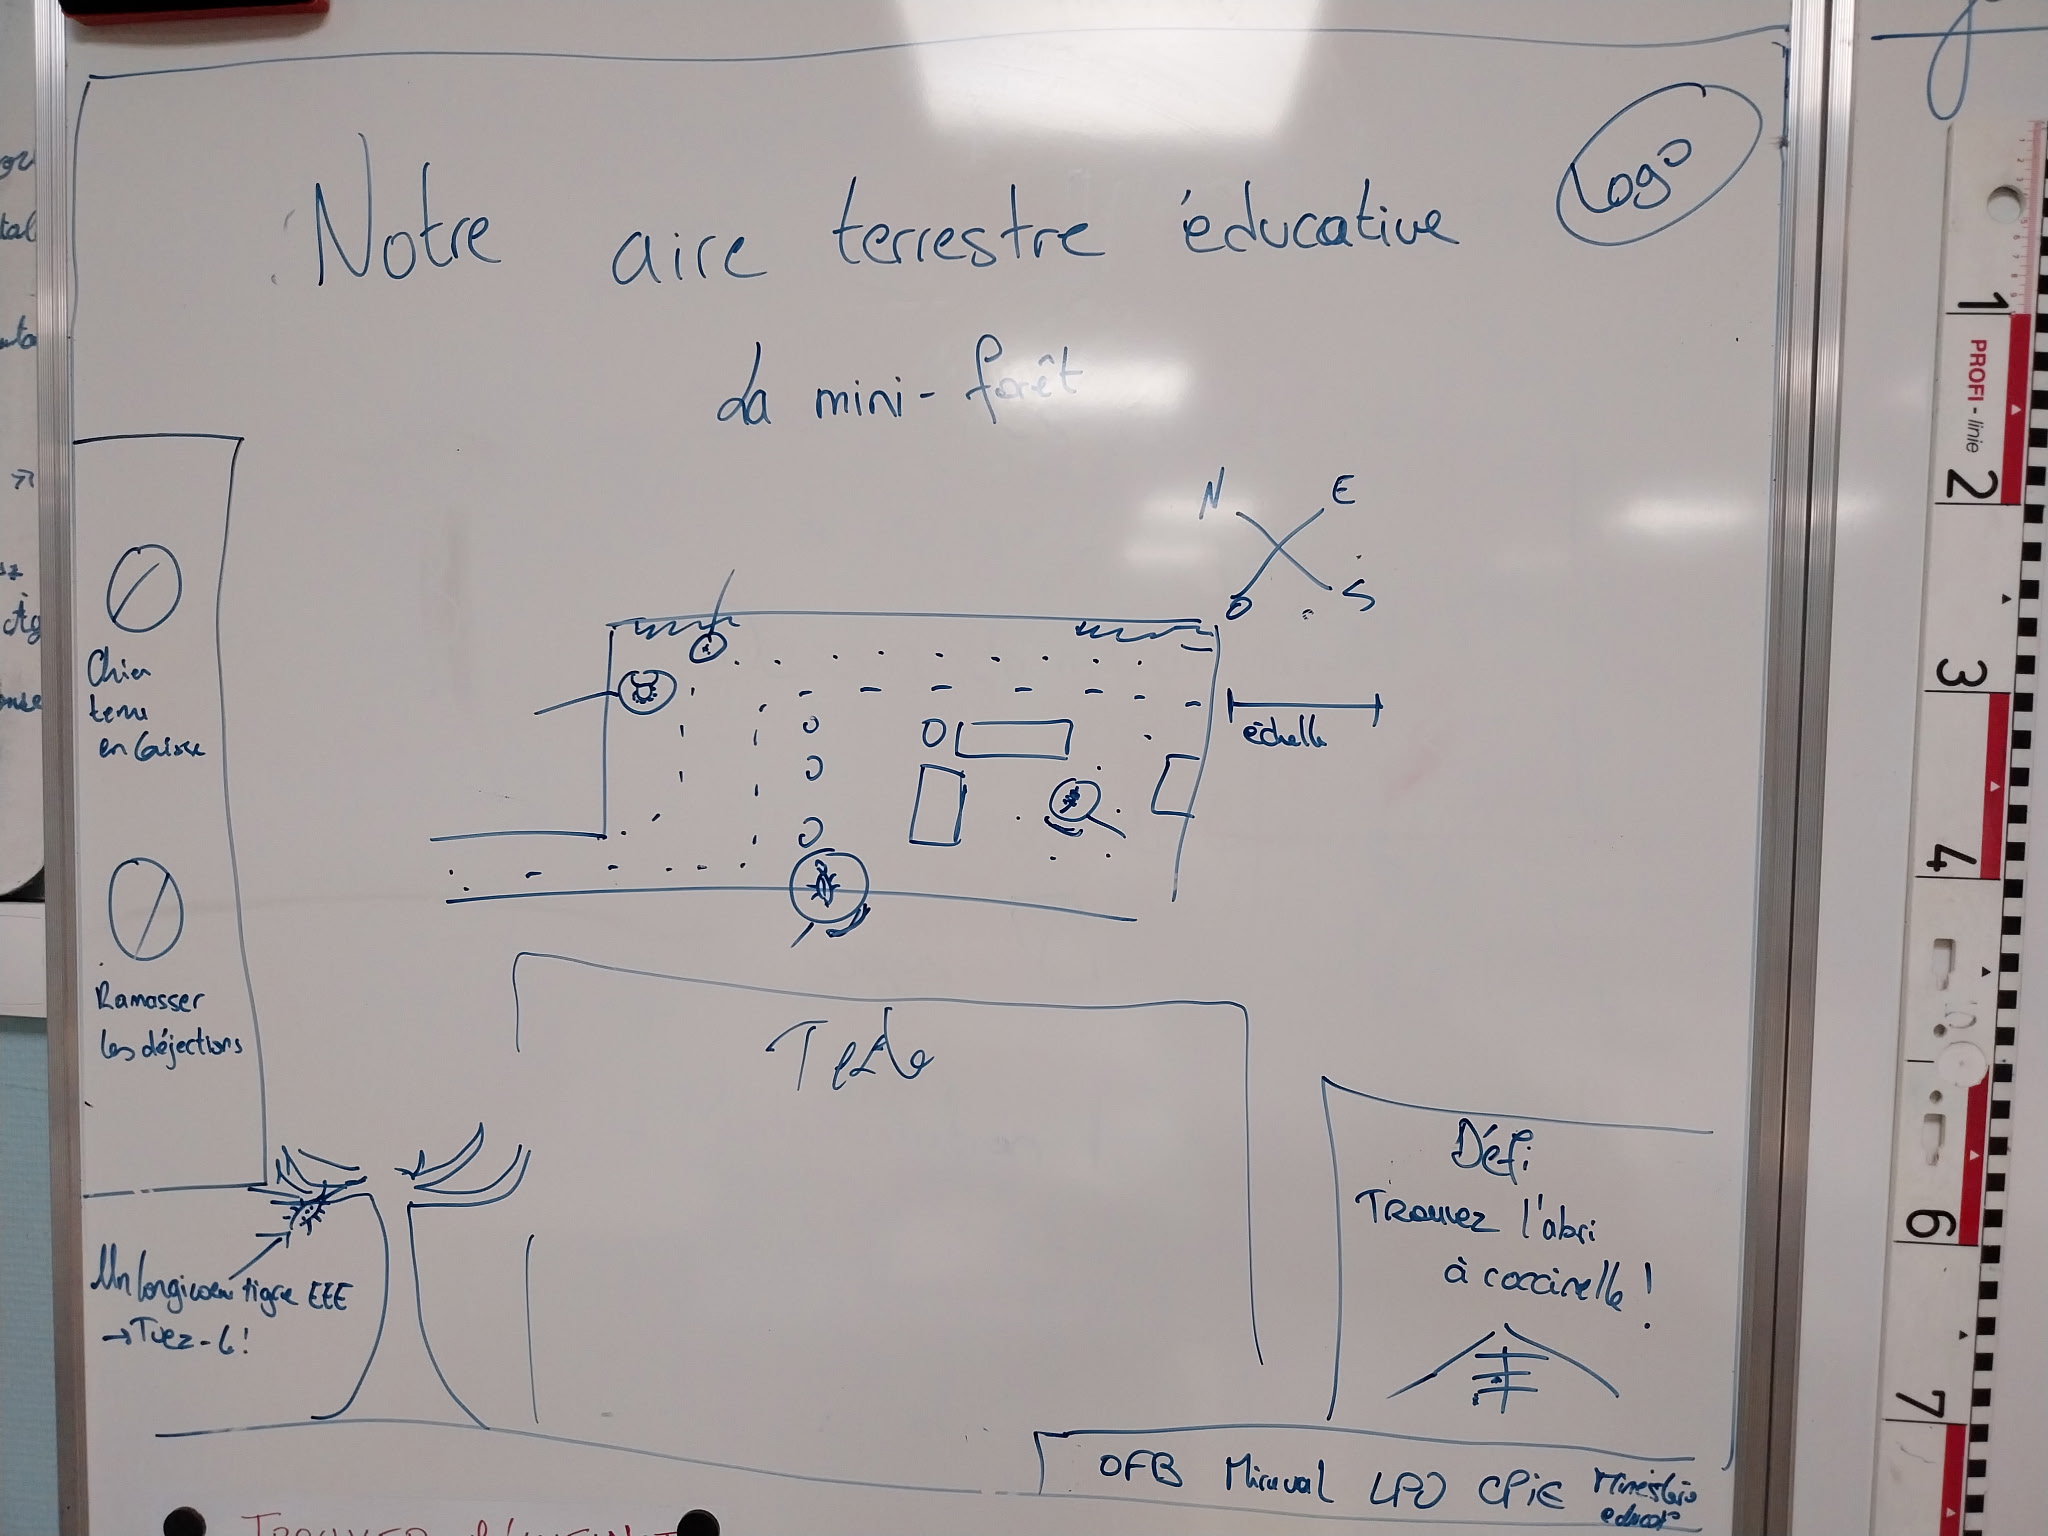 Notre aire terrestre éducative
Logo
La mini-forêt
N E
O S
échelle
Chien
tenu
en laisse
Ramasser
les déjections
Texte
Un longicorne tigre EEE
→ Tuez-le!
Défi
Trouvez l'abri
à coccinelle !
OFB Miraval LPO CPiE Ministère
educat°
PROFI-linie
1
2
3
4
6
7